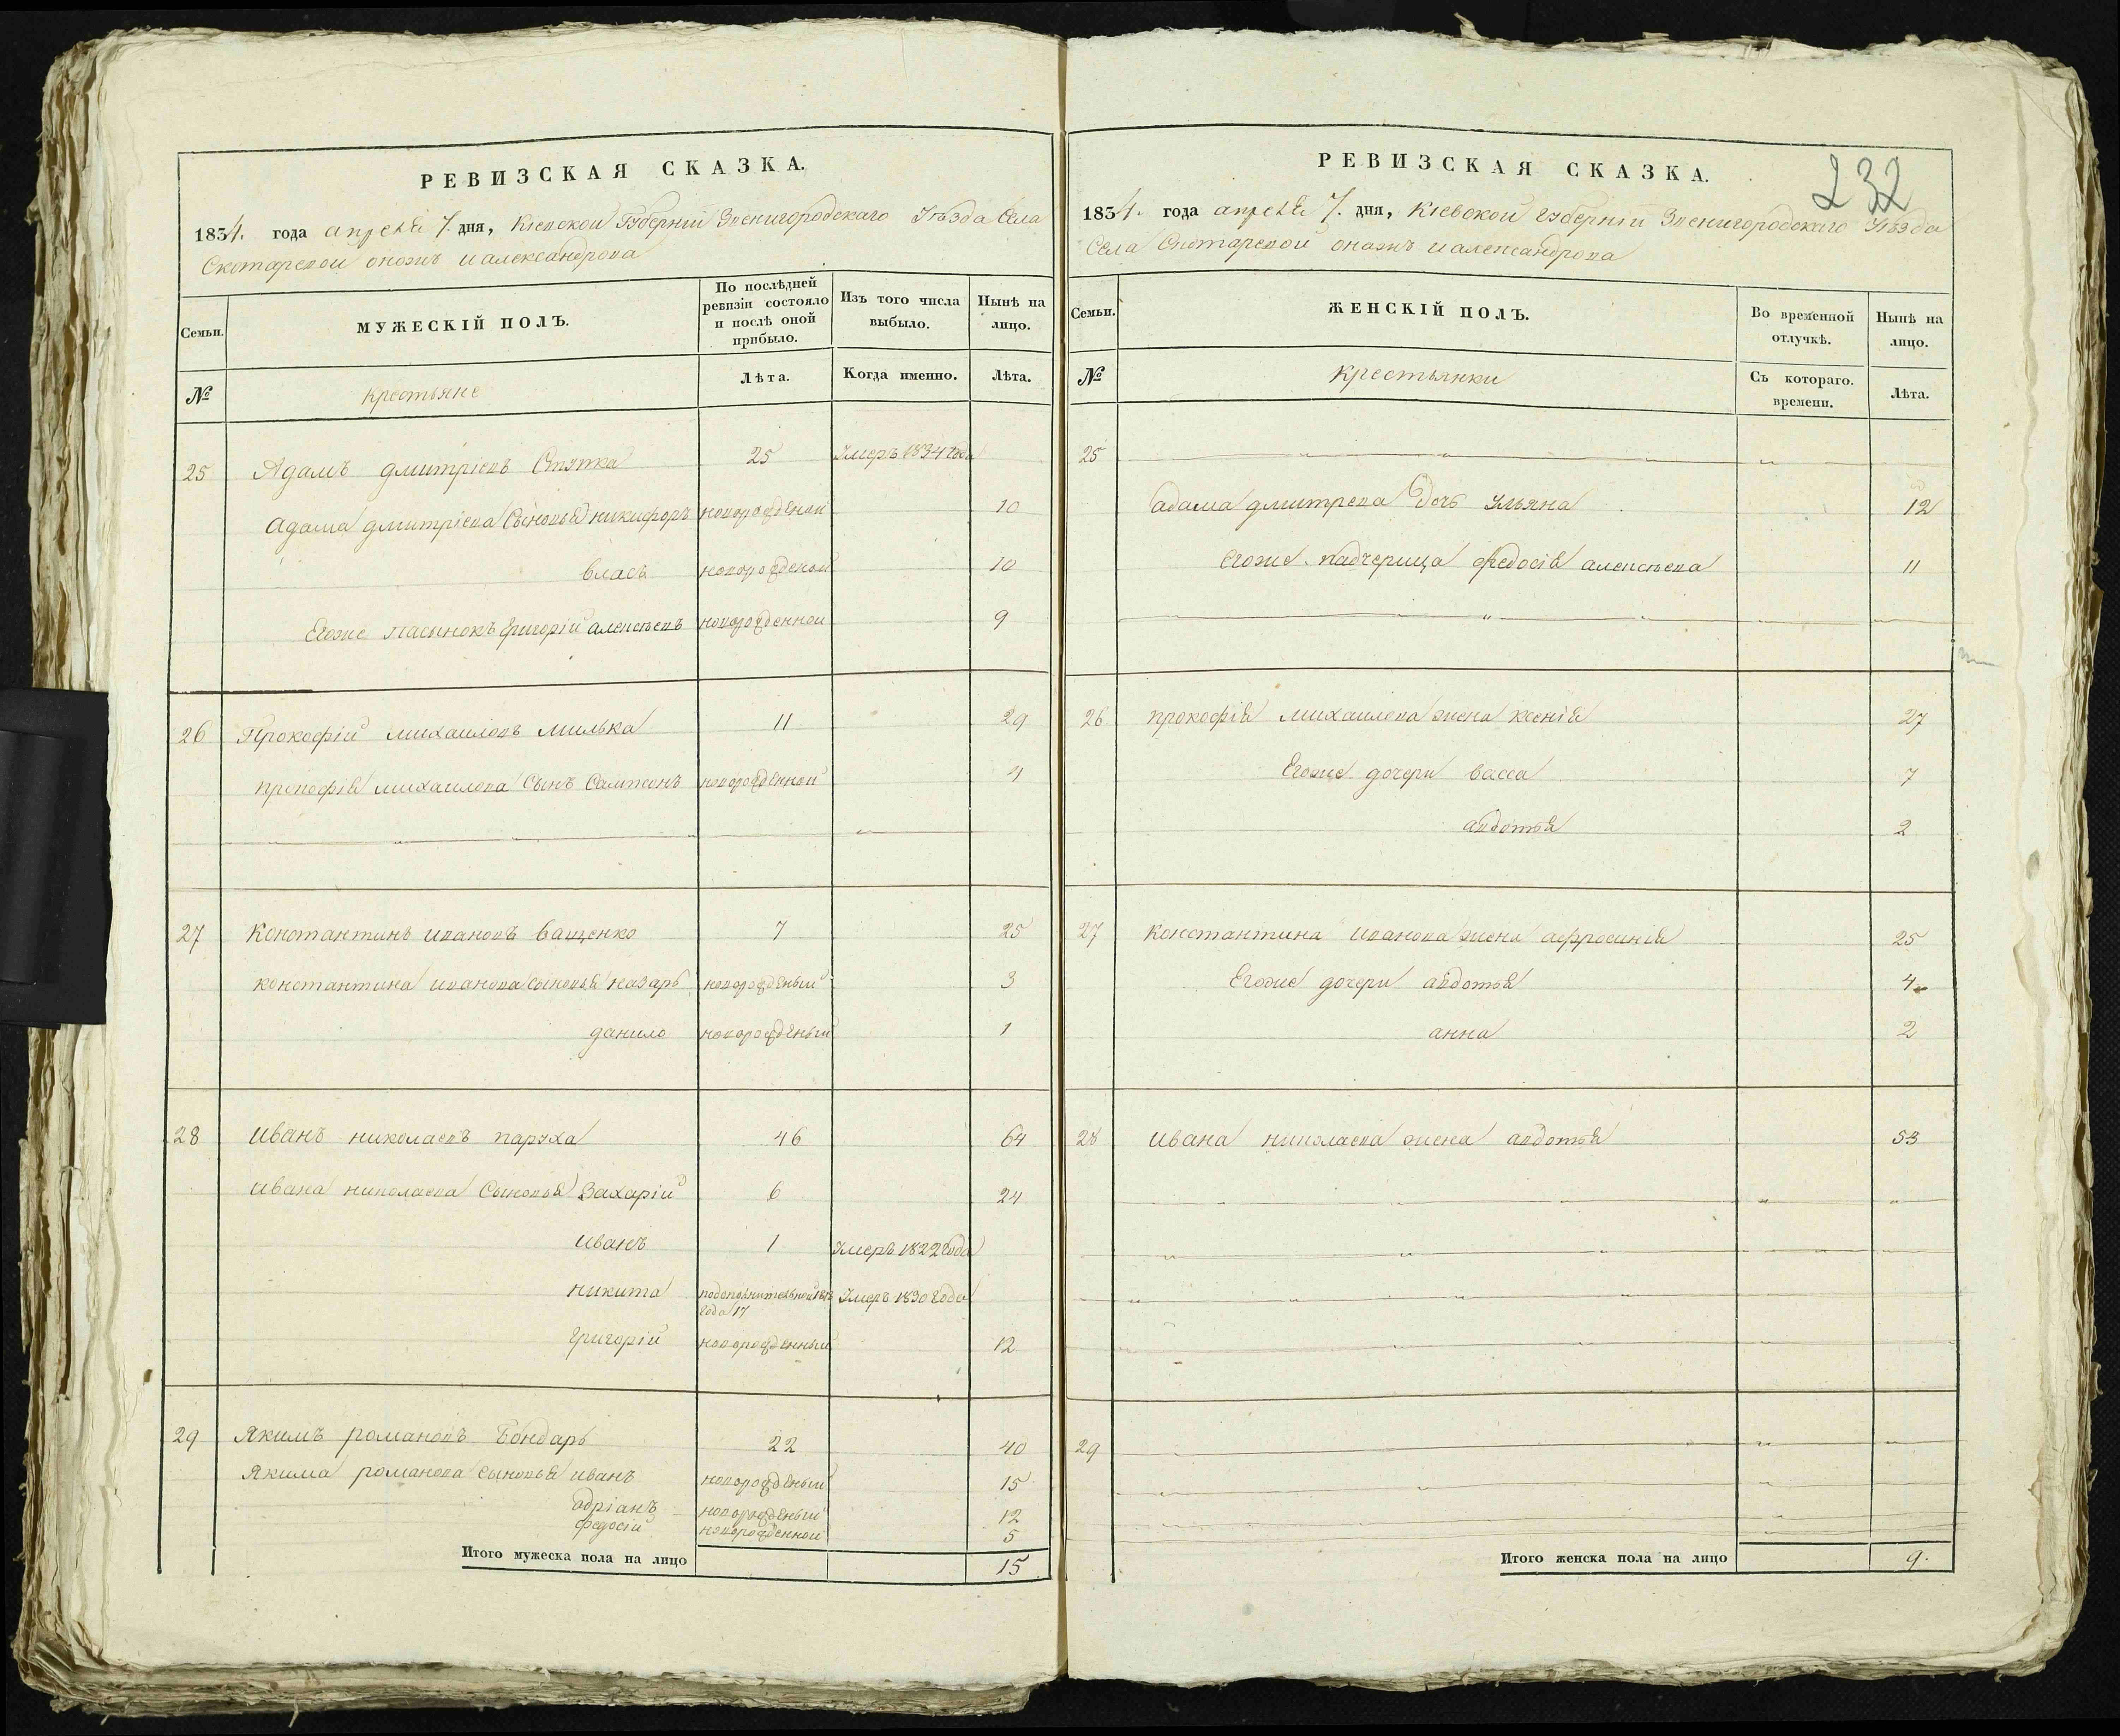 РЕВИЗСКАЯ СКАЗКА.
1834. года апреля 7. дня, Кіевской Губерніи Звенигородскаго Уѣзда Села
Скотаревой
Семьи.
МУЖЕСКІЙ ПОЛЪ.
По послѣдней ревизіи состояло и послѣ оной прибыло.
Изъ того числа выбыло.
Нынѣ на лицо.
№
крестьяне
Лѣта.
Когда именно.
Лѣта.
25 Адамъ дмитріевъ Ступка 25 Умеръ 1834 года
Адама дмитріева Сыновья никифоръ новорожденой 10
власъ новорожденой 10
Егоже пасынокъ григорій алексѣевъ новорожденной 9
26 Прокофій михаиловъ милька 11 29
прокофія михаилова Сынъ Сампсонъ новорожденной 4
27 Константинъ ивановъ ващенко 7 25
константина иванова сыновья назаръ новорожденый 3
данило новорожденый 1
28 иванъ николаевъ паруха 46 64
ивана николаева Сыновья Захарій 6 24
иванъ 1 Умеръ 1822 года
никита подополнительной
года 17 Умеръ 1830 года
григорій новорожденный 12
29 Якимъ романовъ Бондарь 22 40
Якима романова сыновья иванъ новорожденый 15
адріанъ новорожденый 12
федосій новорожденной 5
Итого мужеска пола на лицо 15
232
РЕВИЗСКАЯ СКАЗКА.
1834. года апреля 7. дня, Кіевской Губерніи Звенигородскаго Уѣзда
Села Скотаревой
Семьи.
ЖЕНСКІЙ ПОЛЪ.
Во временной отлучкѣ.
Нынѣ на лицо.
№
крестьянки
Съ котораго. времени.
Лѣта.
25
адама дмитрева дочь Ульяна 12
Егоже падчерица федосія алексѣева 11
26 прокофія михаилова жена ксенія 27
Егоже дочери васса 7
авдотья 2
27 константина иванова жена афросинія 25
Егоже дочери авдотья 4
анна 2
28 ивана николаева жена авдотья 53
29
Итого женска пола на лицо 9.